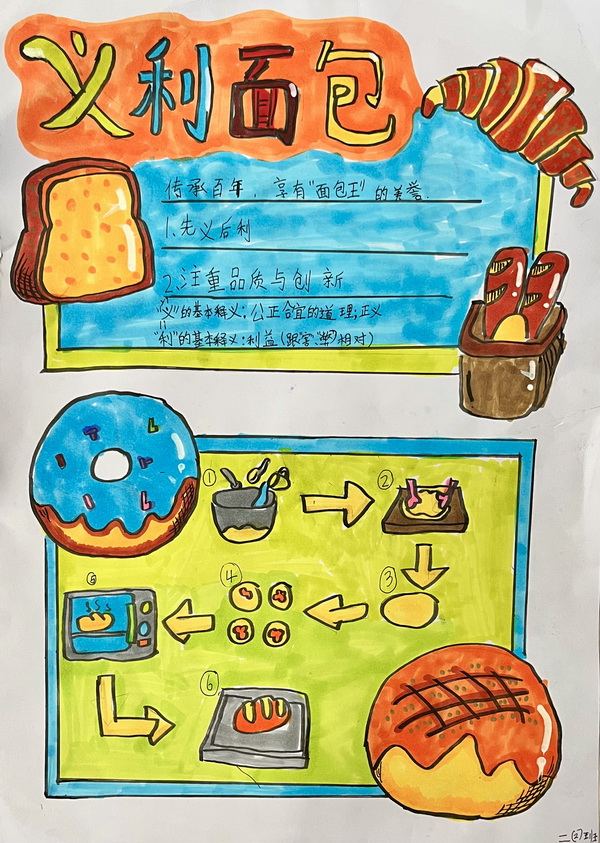 义利面包
传承百年，享有"面包王"的美誉.
1.先义后利
2.注重品质与创新
"义"的基本释义:公正合宜的道理;正义
"利"的基本释义:利益(跟"害""弊"相对)
①
②
③
④
⑤
⑥
二(2)班